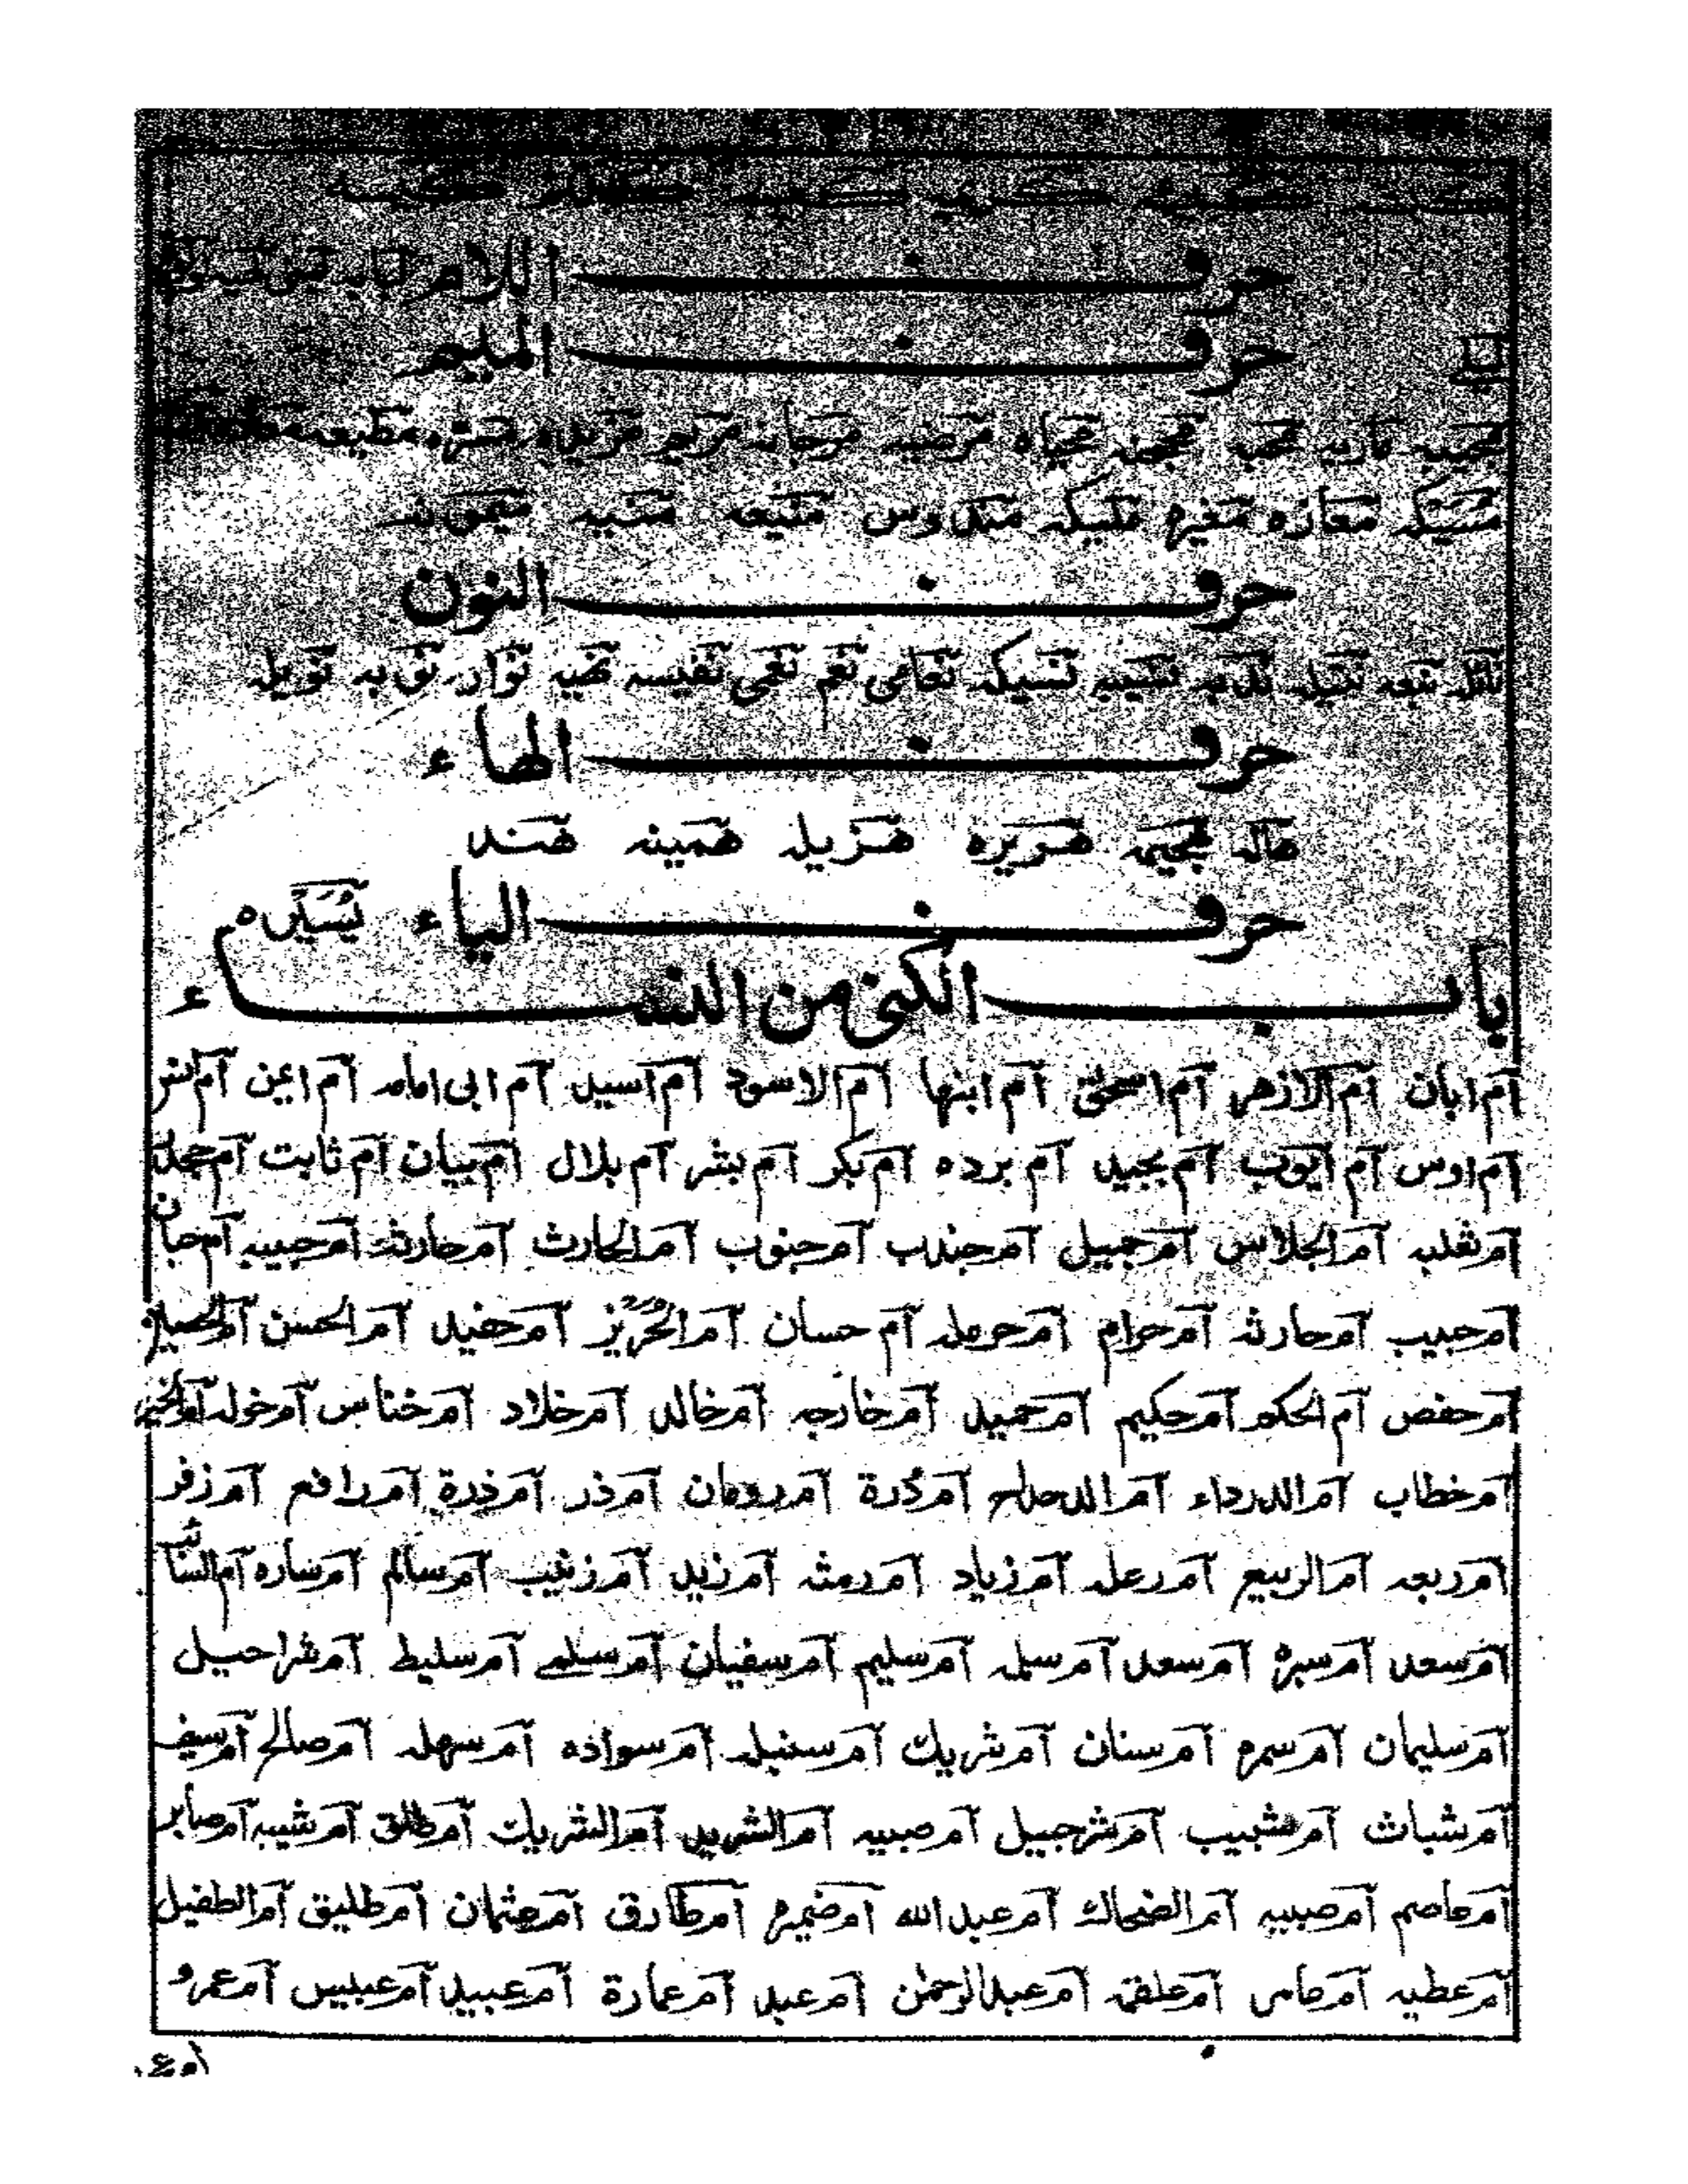 كبشه كريمه كعيبه كلثم كبيسه
حرف اللام لبابه لبنى
حرف الميم
مجيبه ماريه محبه محجن محياه مرضيه مرجانه مريم مزيده مسره مطيعه
مسيكه معاذه مغيره مليكه مندوس منيعه منيه ميمونه
حرف النون
نائله نبعه نتيله ندبه نسيبه نسيكه نعامى نعم نعمى نفيسه نهيه نوار نوبه نويله
حرف الهاء
هاله هجيمه هريره هزيله همينه هند
حرف الياء يسيره
باب الكنى من النساء
ام ابان ام الازهر ام اسحق ام ابنها ام الاسود ام اسيد ام ابى امامه ام ايمن ام انس
ام اوس ام ايوب ام بجيد ام برده ام بكر ام بشر ام بلال ام بيان ام ثابت ام جحلد
ام ثعلبه ام الجلاس ام جميل ام جندب ام جنوب ام الحارث ام حارثه ام حبيبه ام حبان
ام حبيب ام حارثه ام حرام ام حرمله ام حسان ام الحرير ام حفيد ام الحسن ام الحصين
ام حفص ام الحكم ام حكيم ام حميد ام خارجه ام خالد ام خلاد ام خناس ام خوله ام الخير
ام خطاب ام الدرداء ام الدحداح ام درة ام رومان ام ذر ام ذرة ام رافع ام زفر
ام ربعه ام الربيع ام رعله ام زياد ام رمثه ام زيد ام زينب ام سالم ام ساره ام السائب
ام سعد ام سبره ام سعد ام سمله ام سليم ام سفيان ام سلمى ام سليط ام شراحيل
ام سليمان ام سمره ام سنان ام شريك ام سنبله ام سواده ام سهله ام صالح ام سيف
ام شباث ام شبيب ام شرحبيل ام صبيه ام الشريد ام الشريك ام طلق ام شيبه ام صابر
ام عاصم ام صبيه ام الضحاك ام عبد الله ام ضميره ام طارق ام عثمان ام طليق ام الطفيل
ام عطيه ام عامر ام علقمه ام عبد الرحمن ام عبد ام عمارة ام عبيد ام عبيس ام عمرو
ام ع